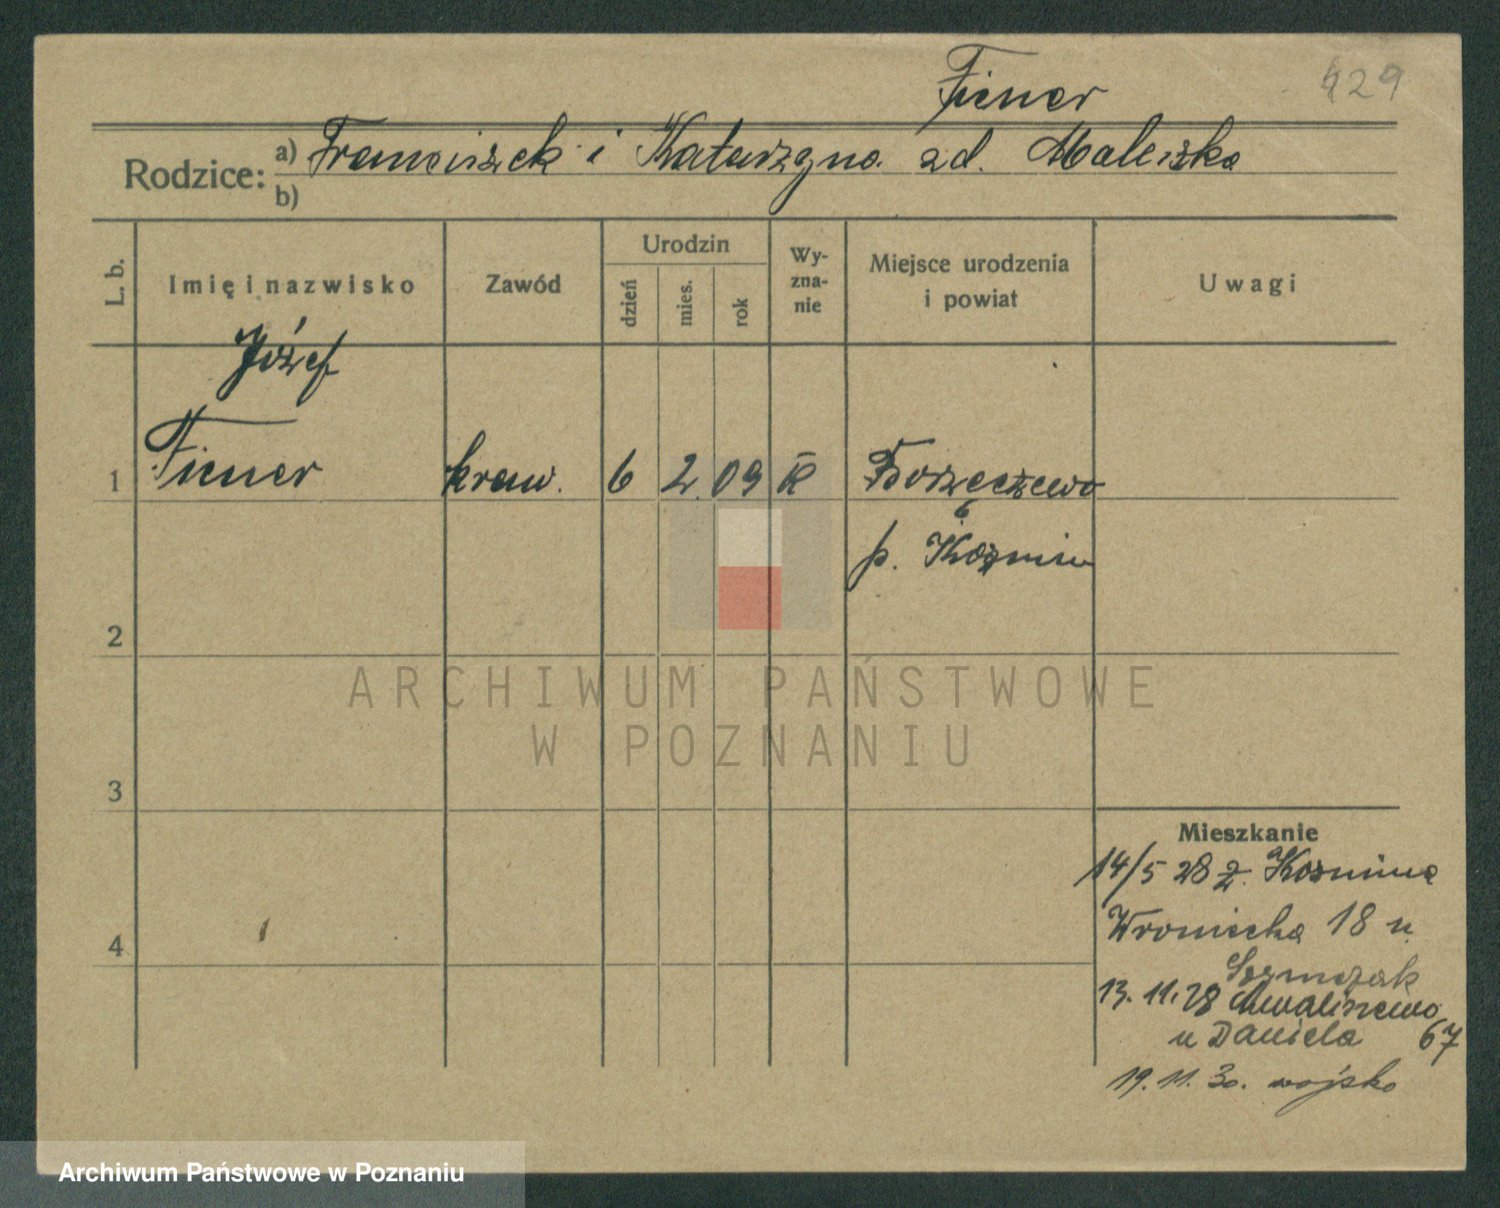 Fiener
429
Rodzice: a) Franciszek i Katarzyna zd. Maleiska
b)
L. b.
Imię i nazwisko
Zawód
Urodzin
dzień
mies.
rok
Wy-
zna-
nie
Miejsce urodzenia
i powiat
Uwagi
Józef
1 Fiener kraw. 6 2. 09 R Borzęczewo
p. Koźmin
2
ARCHIWUM PAŃSTWOWE
W POZNANIU
3
Mieszkanie
14/5 28 z. Koźmina
Wroniecka 18 u
4
Szymczak
13. 11. 28 Chwaliszewo
u Daniela 67
19. 11. 30. wojsko
Archiwum Państwowe w Poznaniu